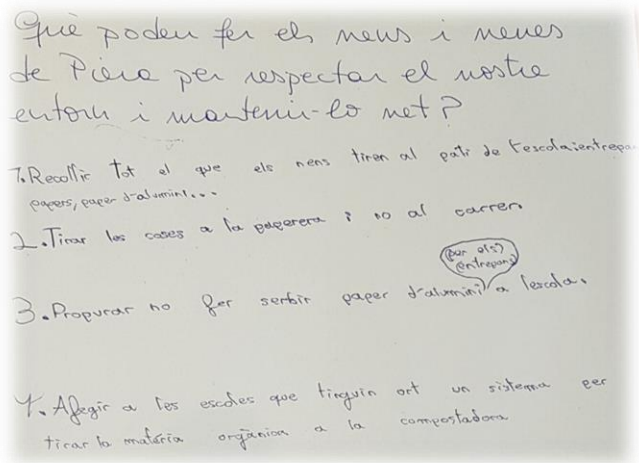 Què poden fer els nens i nenes
de Piera per respectar el nostre
entorn i mantenir-lo net?
1. Recollir tot el que els nens tiren al pati de l'escola: entrepa
papers, paper d'alumini...
2. Tirar les coses a la paperera i no al carrer.
(per els)
entrepans
3. Propurar no fer serbir paper d'alumini a l'escola.
4. Afegir a les escoles que tinguin ort un sistema per
tirar la matèria orgànica a la compostadora